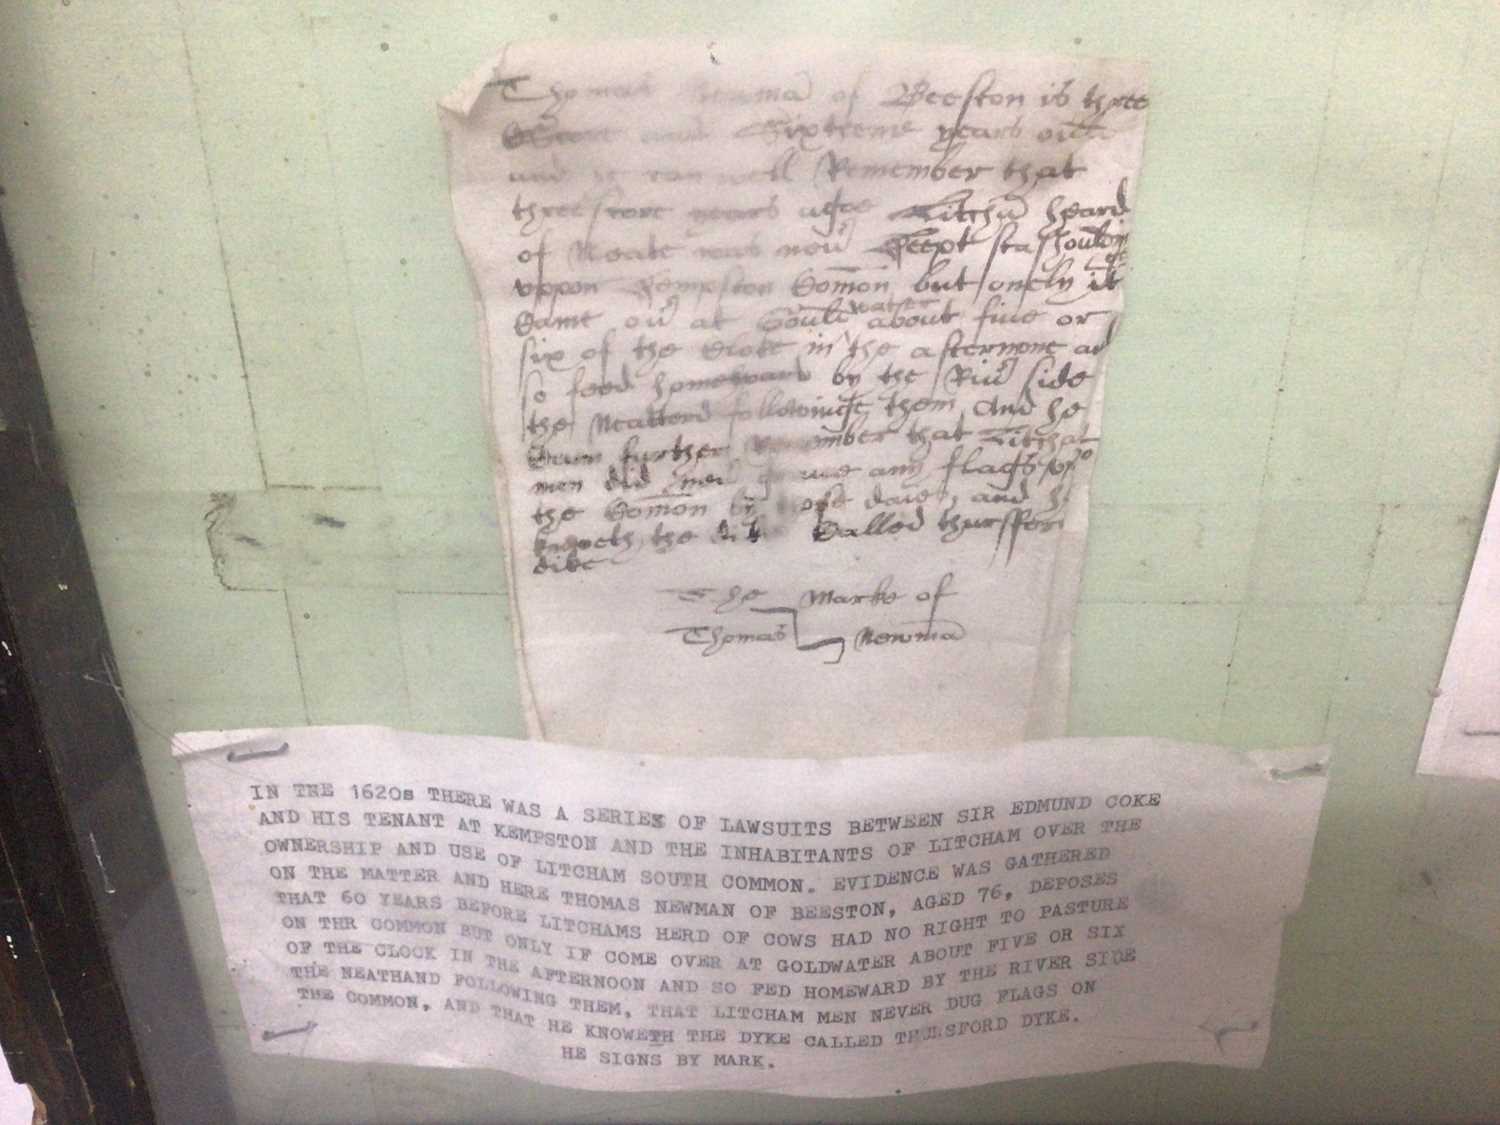 Thomas Newmā of Beeston is three
Score and Sixteene years ould
and he can well Remember that
threescore years agoe Litchā heard
of Neate was nev̄ Keept
vppon Kempston Comōn but onely
Came ov̄ at Gould water about fiue or
six of the Clocke in the afternone ad
so feed homeward by the Riv̄ side
the Neatherd followinge them And he
further Remember that Litchā
men did nev̄ any flags
the Comōn by those daies, and he
knoweth the dike Called thursfford
dike
The Marke of
Thomas Newmā
IN THE 1620s THERE WAS A SERIES OF LAWSUITS BETWEEN SIR EDMUND COKE
AND HIS TENANT AT KEMPSTON AND THE INHABITANTS OF LITCHAM OVER THE
OWNERSHIP AND USE OF LITCHAM SOUTH COMMON. EVIDENCE WAS GATHERED
ON THE MATTER AND HERE THOMAS NEWMAN OF BEESTON, AGED 76, DEPOSES
THAT 60 YEARS BEFORE LITCHAMS HERD OF COWS HAD NO RIGHT TO PASTURE
ON THR COMMON BUT ONLY IF COME OVER AT GOLDWATER ABOUT FIVE OR SIX
OF THE CLOCK IN THE AFTERNOON AND SO FED HOMEWARD BY THE RIVER SIDE
THE NEATHAND FOLLOWING THEM, THAT LITCHAM MEN NEVER DUG FLAGS ON
THE COMMON, AND THAT HE KNOWETH THE DYKE CALLED THURSFORD DYKE.
HE SIGNS BY MARK.